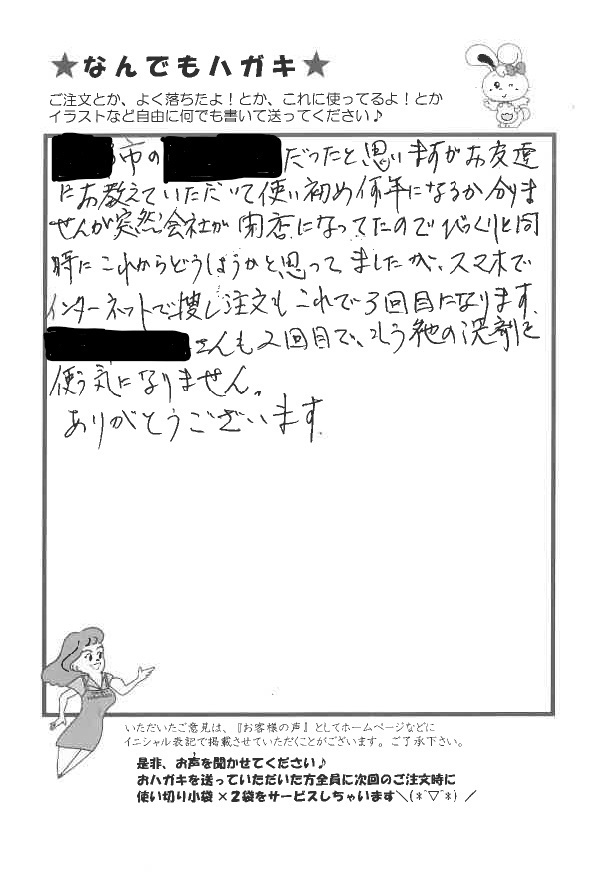 ★なんでもハガキ★
ご注文とか、よく落ちたよ!とか、これに使ってるよ!とか
イラストなど自由に何でも書いて送ってください♪
市の だったと思いますがお友達
にお教えていただいて使い初め何年になるか分りま
せんが突然会社が閉店になってたのでびっくりと同
時にこれからどうしようかと思ってましたが、スマホで
インターネットで捜し注文もこれで3回目になります。
さんも2回目で、もう他の洗剤を
使う気になりません。
ありがとうございます。
いただいたご意見は、『お客様の声』としてホームページなどに
イニシャル表記で掲載させていただくことがございます。ご了承下さい。
是非、お声を聞かせてください♪
おハガキを送っていただいた方全員に次回のご注文時に
使い切り小袋×2袋をサービスしちゃいます＼(*ˊ▽ˋ*)／